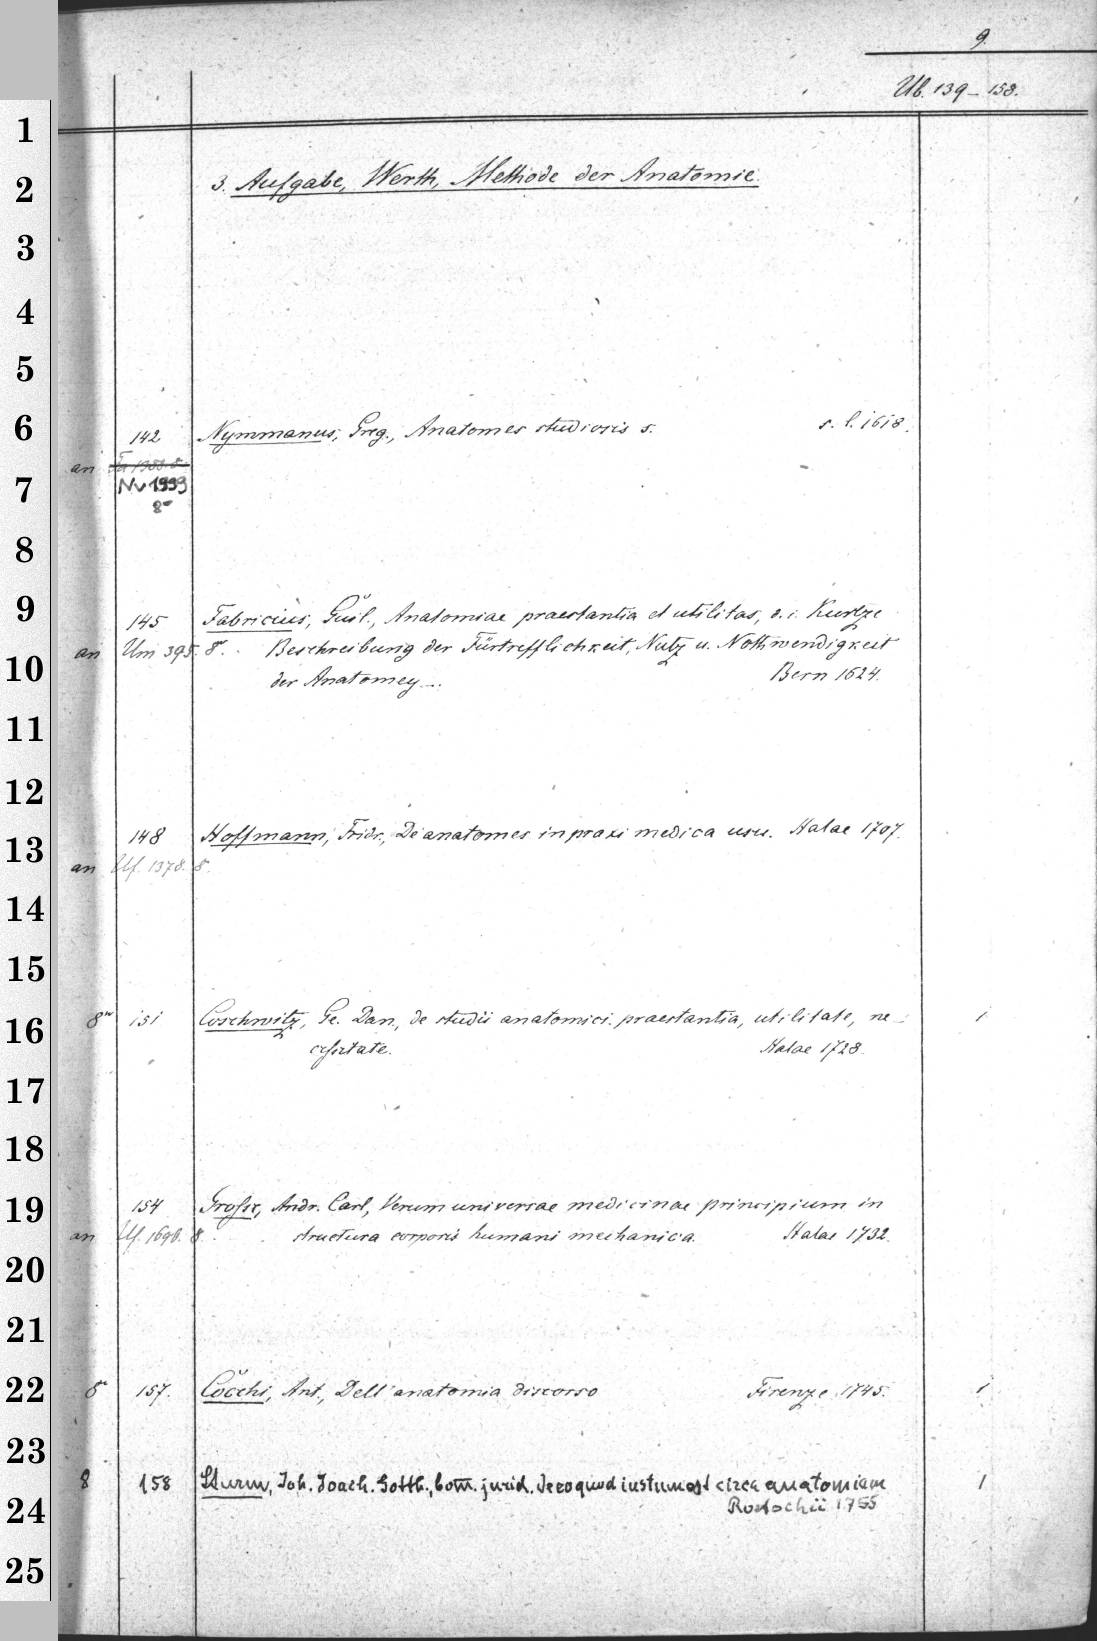 9.
Ub. 139 – 158.
1
2
3
4
5
6
7
8
9
10
11
12
13
14
15
16
17
18
19
20
21
22
23
24
25
3. Aufgabe, Werth, Methode der Anatomie.
142 Nymmanus, Greg., Anatomes studiosis s. s. l. 1618.
an
Nv 1999
8°
145 Fabricius, Guil., Anatomiae praestantia et utilitas, d. i. Kurtze
an Um 395. 8°. Beschreibung der Fürtrefflichkeit, Nutz u. Nothwendigkeit
der Anatomey... Bern 1624.
148 Hoffmann, Fridr., De anatomes in praxi medica usu. Halae 1707.
an Uf. 1378. 8.
8° 151 Coschwitz, Ge. Dan., de studii anatomici praestantia, utilitate, ne- 1
cessitate. Halae 1728.
154 Grosse, Andr. Carl, Verum universae medicinae principium in
an Uf. 1690. 8. structura corporis humani mechanica. Halae 1732.
8° 157. Cocchi, Ant., Dell'anatomia discorso Firenze 1745. 1
8 158 Sturm, Joh. Joach. Gottl., Com. jurid. de eo quod iustum est circa anatomiam 1
Rostochii 1755